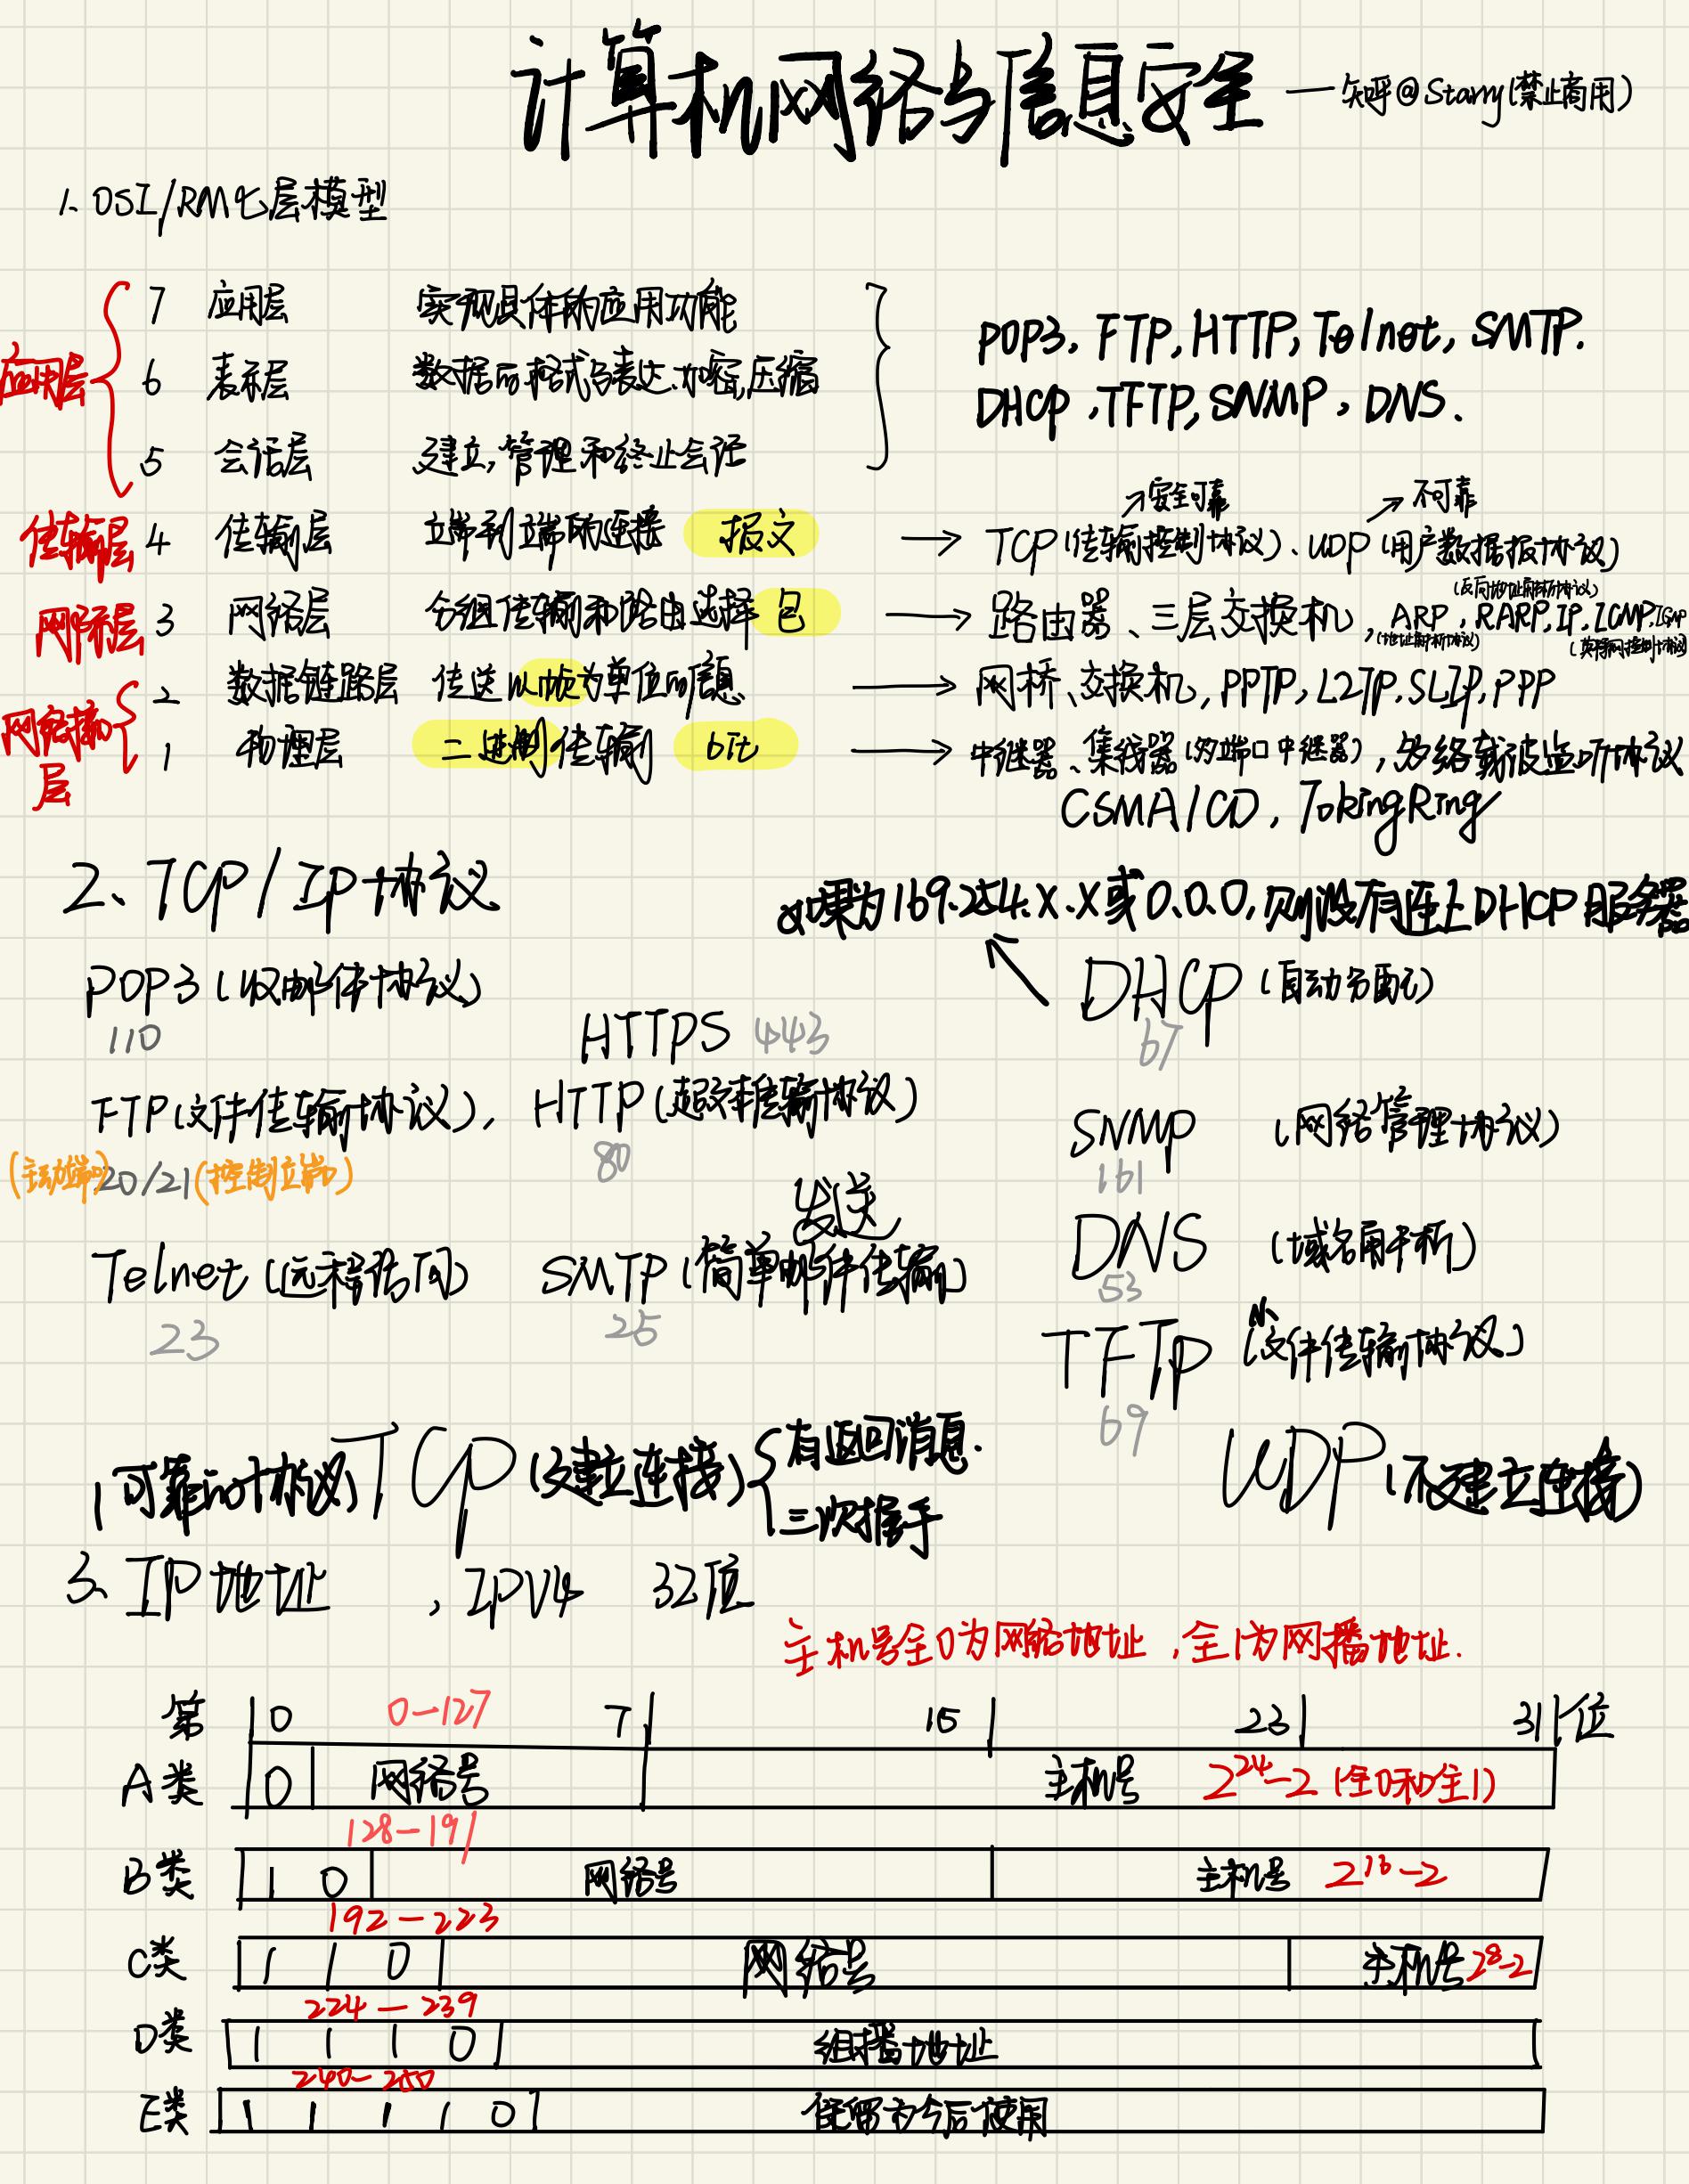 计算机网络与信息安全 — 知乎@Starry(禁止商用)
1、OSI/RM七层模型
应用层
7 应用层 实现具体的应用功能
6 表示层 数据的格式与表达、加密,压缩
5 会话层 建立,管理和终止会话
POP3, FTP, HTTP, Telnet, SMTP.
DHCP, TFTP, SNMP, DNS.
→安全可靠 →不可靠
传输层 4 传输层 端到端的连接 报文 → TCP(传输控制协议)、UDP(用户数据报协议)
(反向地址解析协议)
网际层 3 网络层 分组传输和路由选择 包 → 路由器、三层交换机, ARP, RARP, IP, ICMP, IGMP
(地址解析协议) (英特网控制协议)
网络接口层
2 数据链路层 传送以帧为单位的信息 → 网桥、交换机, PPTP, L2TP, SLIP, PPP
1 物理层 二进制传输 bit → 中继器、集线器(多端口中继器), 多络载波监听协议
CSMA/CD, TokingRing
2、TCP/IP协议
如果为169.254.X.X或0.0.0,则没有连上DHCP服务器
POP3(收邮件协议)
110
HTTPS 443
DHCP(自动分配)
67
FTP(文件传输协议), HTTP(超文本传输协议)
20/21(控制端口)
80
SNMP (网络管理协议)
161
发送
Telnet(远程访问) SMTP(简单邮件传输)
23
25
DNS (域名解析)
53
小
TFTP (文件传输协议)
69
(可靠的协议)TCP(建立连接)
有返回消息.
三次握手
UDP(不建立连接)
3、IP地址 , IPV4 32位
主机号全0为网络地址,全1为网播地址.
第 0 0—127 7 15 23 31 位
A类 0 网络号 主机号 2²⁴-2 (全0和全1)
128—191
B类 1 0 网络号 主机号 2¹⁶-2
192—223
C类 1 1 0 网络号 主机号 2⁸-2
224—239
D类 1 1 1 0 组播地址
240—250
E类 1 1 1 1 0 保留为今后使用